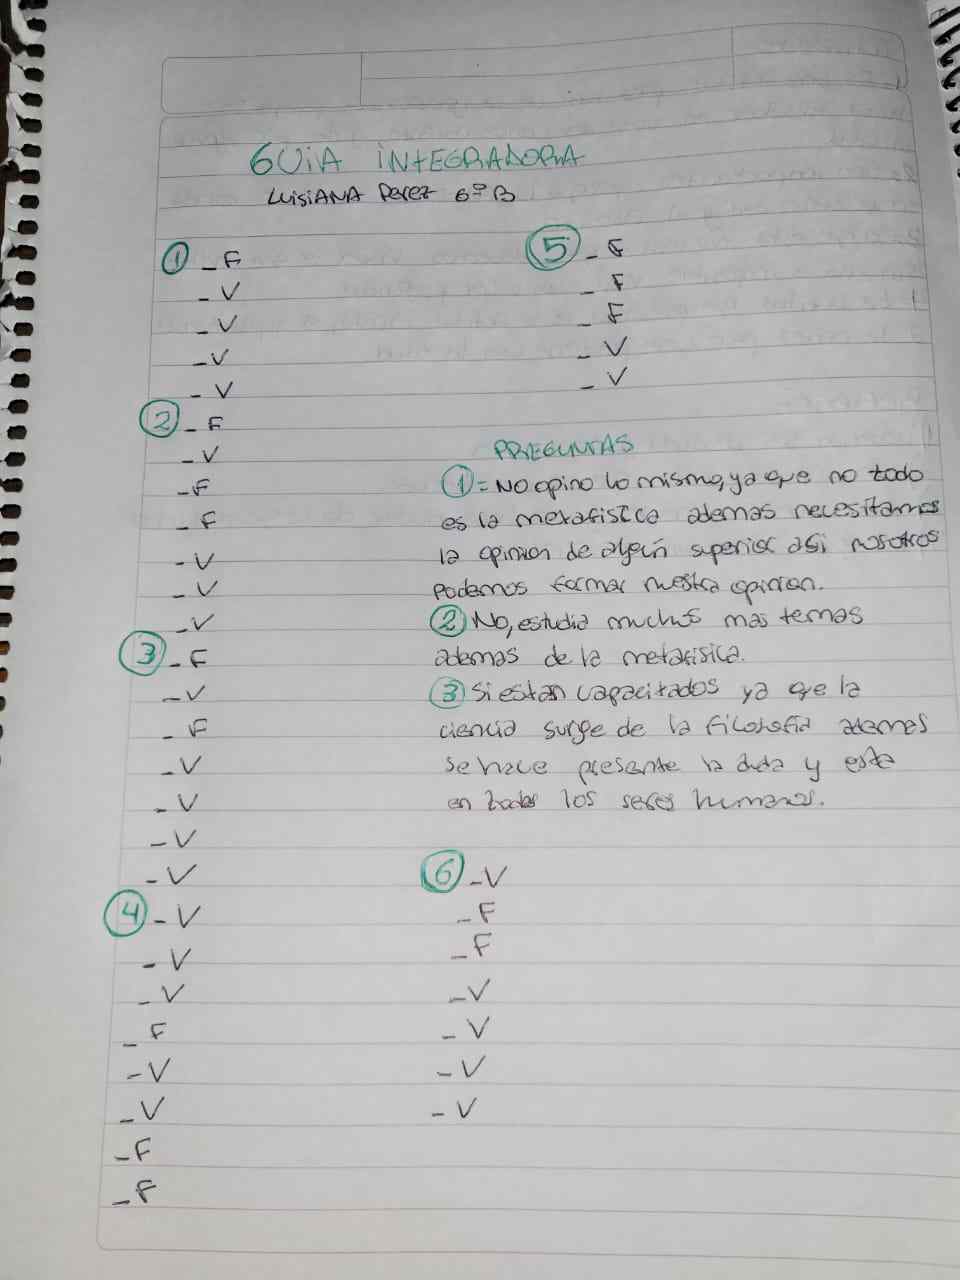 GUiA iNtEGRADORA
LuisiANA Perez 6º B
① - F
- V
- V
- V
- V
② - F
- V
- F
- F
- V
- V
- V
③ - F
- V
- F
- V
- V
- V
- V
④ - V
- V
- V
- F
- V
- V
- F
- F
⑤ - F
- F
- F
- V
- V
PREGUNTAS
① = No opino lo mismo, ya que no todo
es la metafisica ademas necesitamos
la opinion de algun superior asi nosotros
podemos formar nuestra opinion.
② No, estudia muchos mas temas
ademas de la metafisica.
③ Si estan capacitados ya que la
ciencia surge de la filosofia ademas
se hace presente la duda y esta
en todos los seres humanos.
⑥ - V
- F
- F
- V
- V
- V
- V